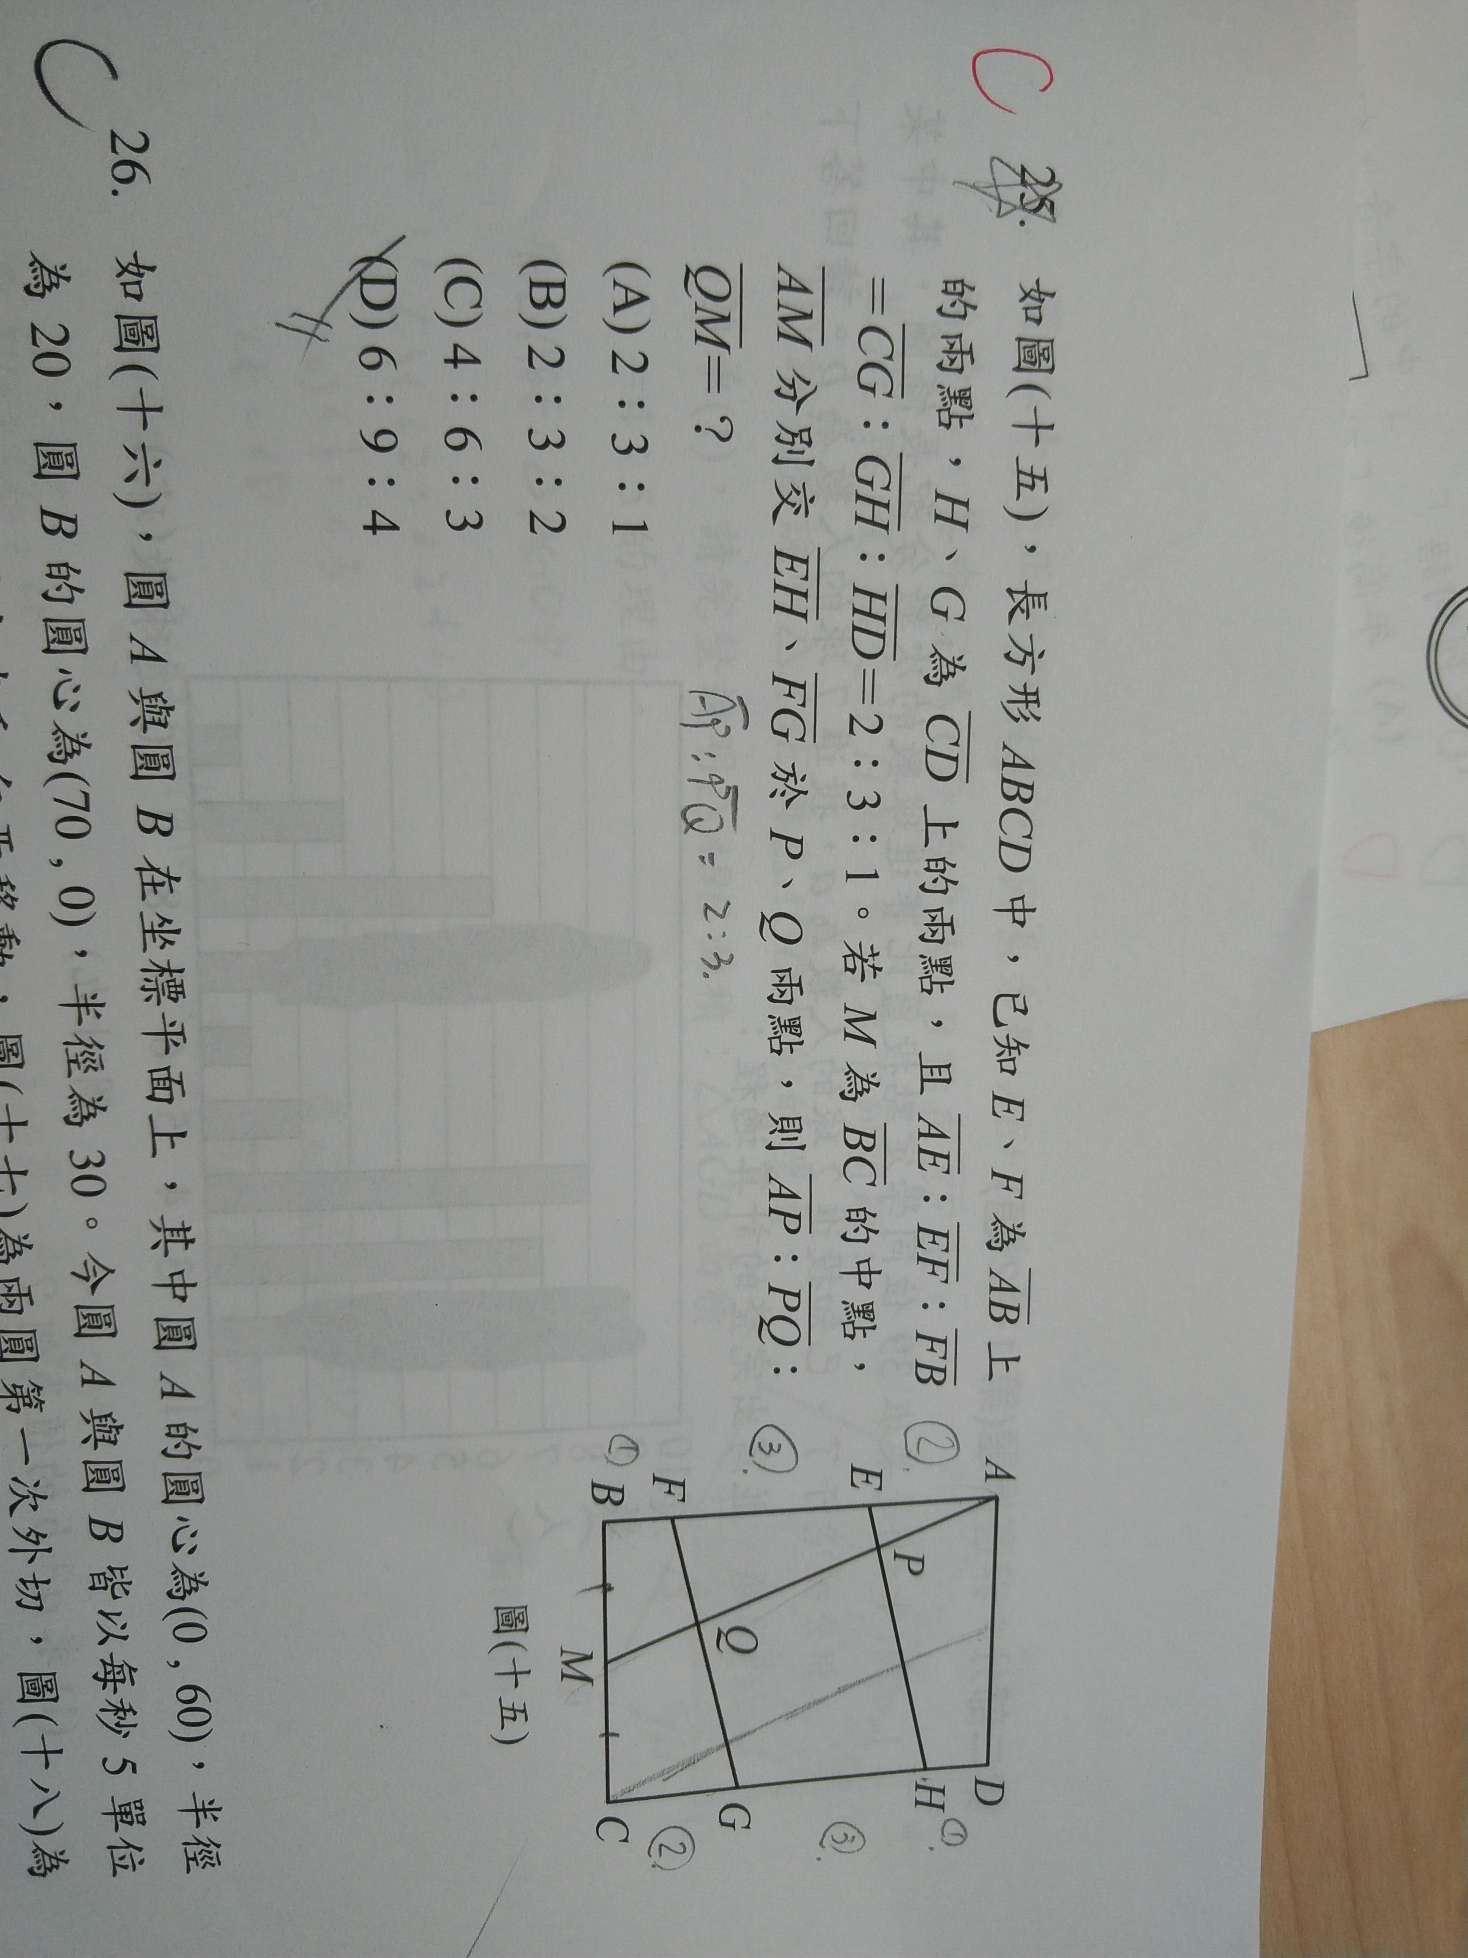 C
25. 如圖(十五)，長方形 ABCD 中，已知 E、F 為 AB 上
的兩點，H、G 為 CD 上的兩點，且 AE：EF：FB
=CG：GH：HD=2：3：1。若 M 為 BC 的中點，
AM 分別交 EH、FG 於 P、Q 兩點，則 AP：PQ：
QM=？
(A) 2：3：1
(B) 2：3：2
(C) 4：6：3
(D) 6：9：4
AP：PQ = 2：3.
A
D
②
①
E
P
H
③
③
F
Q
G
①
②
B
M
C
圖(十五)
C
26. 如圖(十六)，圓 A 與圓 B 在坐標平面上，其中圓 A 的圓心為(0 , 60)，半徑
為 20，圓 B 的圓心為(70 , 0)，半徑為 30。今圓 A 與圓 B 皆以每秒 5 單位
移動，圖(十七)為兩圓第一次外切，圖(十八)為